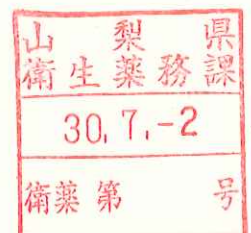 山梨県
衛生薬務課
30.7.-2
衛薬第 号